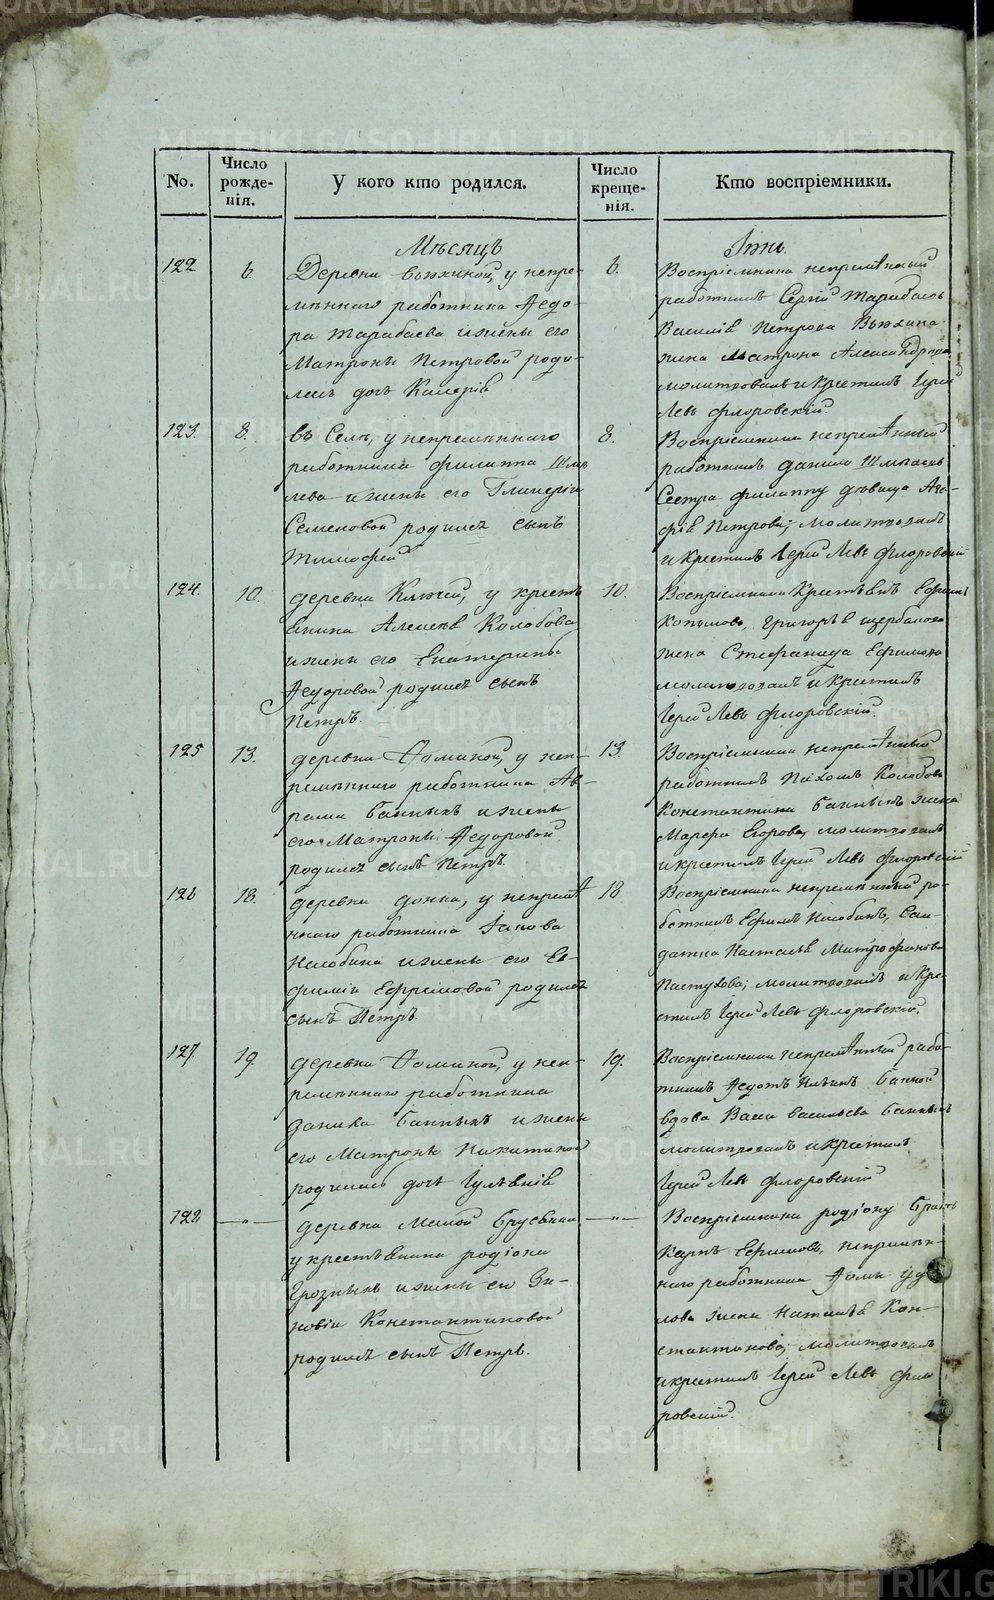 No.
Число рожде-
нія.
У кого кто родился.
Число креще-
нія.
Кто воспріемники.
Мѣсяцъ
Іюнь.
122
6
Деревни Вьюхиной, у непре-
мѣннаго работника Ѳедо-
ра Тарабаева и жены его
Матроны Петровой роди-
лась дочь Калерія
6.
Воспріемники непремѣнный
работникъ Сергій Тарабаевъ
Василія Петрова Вьюхина
жена Матрона Александрова
молитвовалъ и крестилъ Іерей
Левъ Флоровскій.
123.
8.
въ Селѣ, у непремѣннаго
работника Филиппа
и жены его Гликеріи
Семеновой родился сынъ
Тимофей
8.
Воспріемники непремѣнный
работникъ Данило
Сестра Филиппу дѣвица Ага-
фія Петрова; молитвовалъ
и крестилъ Іерей Левъ Флоровскій
124.
10.
деревни Ключей, у кресть
янина Алексѣя Колобова
и жены его Екатерины
Ѳедоровой родился сынъ
Петръ.
10.
Воспріемники Крестьянинъ Ефимъ
Копыловъ, Григорья Щербакова
жена Стефанида Ефимова
молитвовалъ и крестилъ
Іерей Левъ Флоровскій.
125
13.
деревни Ѳоминой, у неп-
ремѣннаго работника Ав-
рама Банныхъ и жены
его Матроны Ѳедоровой
родился сынъ Петръ
13.
Воспріемники непремѣнный
работникъ Пахомъ Колобовъ
Константина Банныхъ жена
Марфа Егорова, молитвовалъ
и крестилъ Іерей Левъ Флоровскій
126
18.
деревни у непремѣ
ннаго работника Іакова
и жены его Ев-
фиміи Ефремовой родился
сынъ Петръ.
18
Воспріемники непремѣнный ра-
ботникъ Ефимъ Сол-
датка Наталья Митрофанова
Пастухова; молитвовалъ и кре-
стилъ Іерей Левъ Флоровскій.
127.
19.
деревни Ѳоминой, у неп-
ремѣннаго работника
Данила Банныхъ и жены
его Матроны Никитиной
родилась дочь Іуліанія
19.
Воспріемники непремѣнный рабо-
тникъ Ѳедотъ Ильинъ Банной
вдова Васильева Банныхъ
молитвовалъ и крестилъ
Іерей Левъ Флоровскій
128
—"—
деревни Малой Брусянки
у крестьянина Родіона
Грозныхъ и жены его Зи-
новіи Константиновой
родился сынъ Петръ.
—"—
Воспріемники Родіону братъ
Карпъ Ефимовъ, непремѣн-
наго работника Ѳомы
жена Наталья Кон-
стантинова; молитвовалъ
и крестилъ Іерей Левъ Фло
ровскій.
METRIKI.GASO-URAL.RU